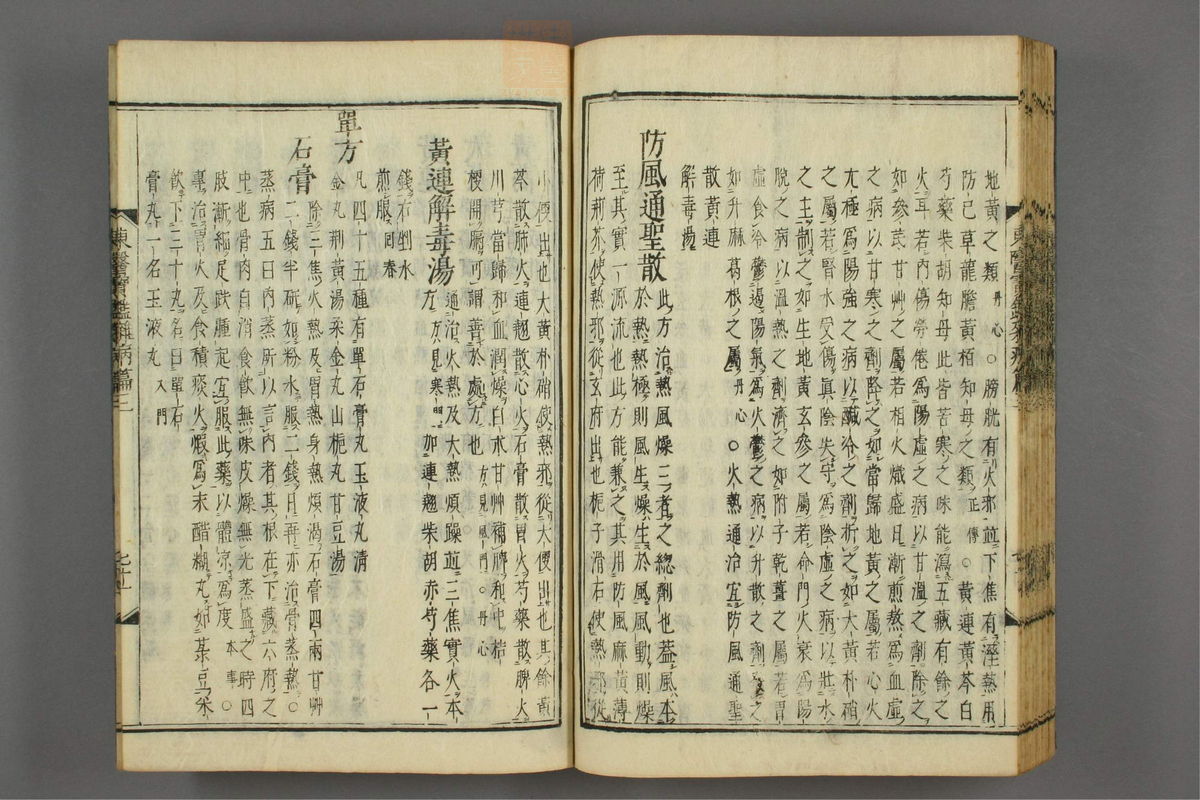 地黃之類丹心○膀胱有火邪並下焦有溼熱用
防已草龍膽黃栢知母之類正傳○黃連黃芩白
芍藥柴胡知母此皆苦寒之味能瀉五藏有餘之
火耳若內傷勞倦爲陽虛之病以甘溫之劑除之
如參芪甘艸之屬若相火熾盛日漸煎熬爲血虛
之病以甘寒之劑降之如當歸地黃之屬若心火
亢極爲陽強之病以醎冷之劑折之如大黃朴硝
之屬若腎水受傷眞陰失守爲陰虛之病以壯水
之主制之如生地黃玄參之屬若命門火衰爲陽
脫之病以溫熱之劑濟之如附子乾薑之屬若胃
虛食冷鬱遏陽氣爲火鬱之病以升散之劑
如升麻葛根之屬丹心○火熱通治宜防風通聖
散黃連
解毒湯
防風通聖散此方治熱風燥三者之緫劑也葢風本
於熱熱極則風生燥生於風風動則燥
至其實一源流也此方能兼之其用防風麻黃薄
荷荊芥使熱邪從玄府出也梔子滑石使熱邪從
小便出也大黃朴硝使熱邪從大便出也其餘黃
芩散肺火連翹散心火石膏散胃火芍藥散脾火
川芎當歸和血潤燥白朮甘艸補脾和中桔
梗開膈可謂善於處方也方見風門○丹心
黃連解毒湯通治火熱及大熱煩躁並三焦實火本
方方見寒門加連翹柴胡赤芍藥各一
錢右剉水
煎服回春
單方凡四十五種有單石膏丸玉液丸清
金丸荊黃湯柔金丸山梔丸甘豆湯
石膏除三焦火熱及胃熱身熱煩渴石膏四兩甘艸
二錢半硏如粉水服二錢日再亦治骨蒸熱○
蒸病五曰內蒸所以言內者其根在下藏六府之
中也骨肉自消食飮無味皮燥無光蒸盛之時四
肢漸細足趺腫起宜服此藥以體凉爲度本事○
專治胃火及食積痰火煆爲末醋糊丸如菉豆米
飮下三十丸名曰單石
膏丸一名玉液丸入門
東醫寶鑑雜病篇三